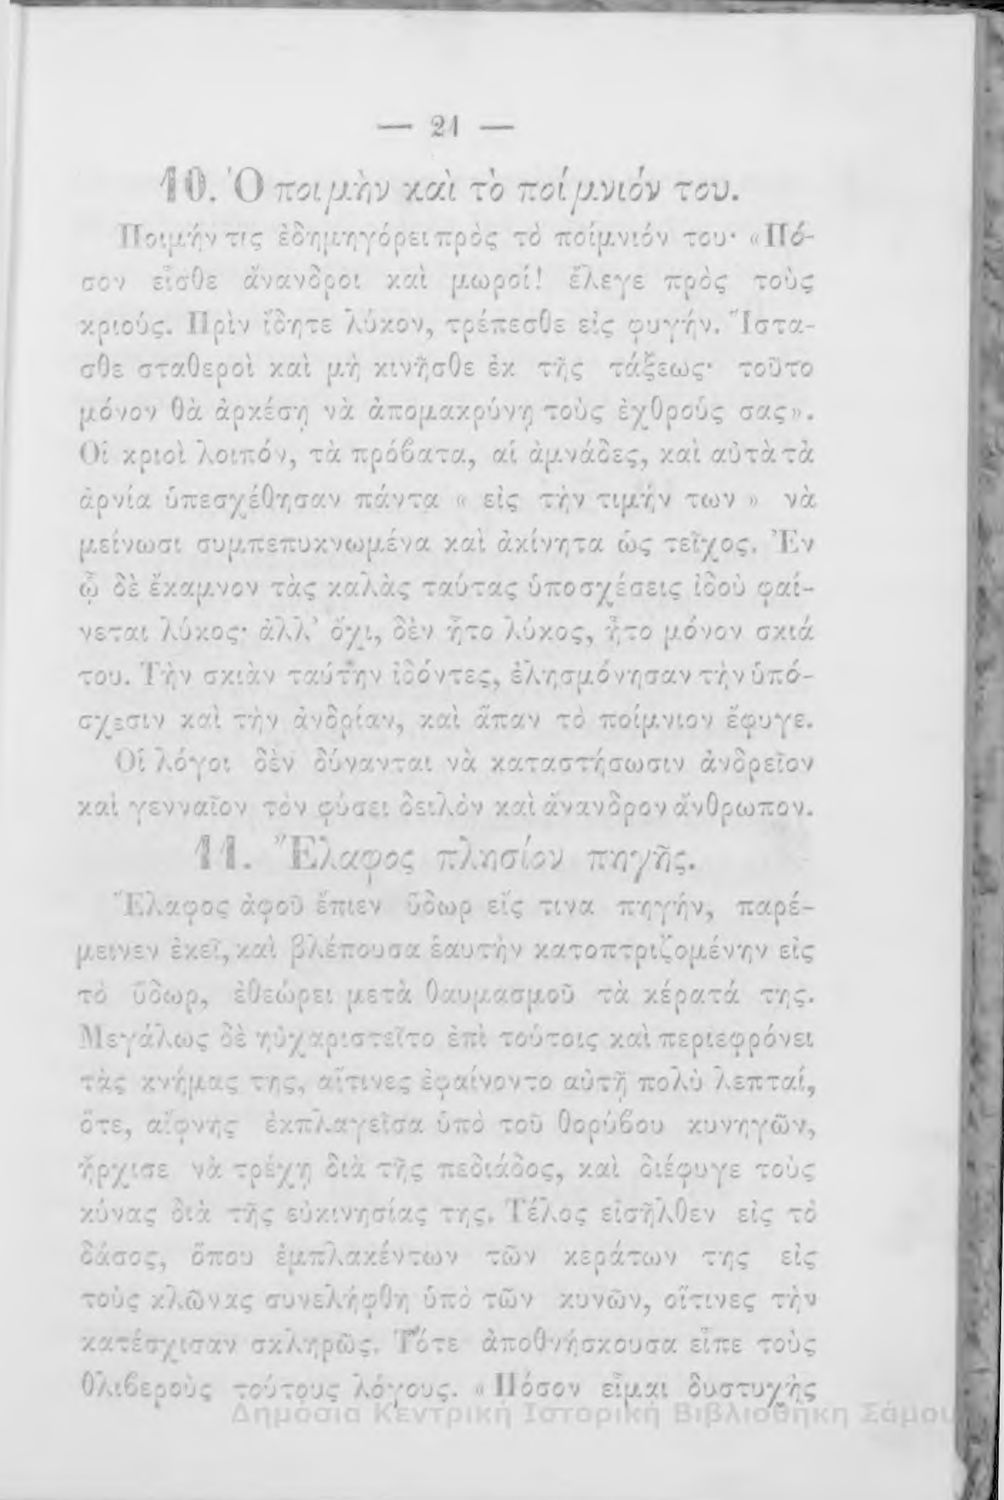 — 21 —
10. Ὁ ποιμὴν καὶ τὸ ποίμνιόν του.
Ποιμήν τις ἐδημηγόρει πρὸς τὸ ποίμνιόν του· «Πό-
σον εἶσθε ἄνανδροι καὶ μωροί! ἔλεγε πρὸς τοὺς
κριούς. Πρὶν ἴδητε λύκον, τρέπεσθε εἰς φυγήν. Ἵστα-
σθε σταθεροὶ καὶ μὴ κινῆσθε ἐκ τῆς τάξεως· τοῦτο
μόνον θὰ ἀρκέσῃ νὰ ἀπομακρύνῃ τοὺς ἐχθρούς σας».
Οἱ κριοὶ λοιπόν, τὰ πρόβατα, αἱ ἀμνάδες, καὶ αὐτὰ τὰ
ἀρνία ὑπεσχέθησαν πάντα « εἰς τὴν τιμήν των » νὰ
μείνωσι συμπεπυκνωμένα καὶ ἀκίνητα ὡς τεῖχος. Ἐν
ᾧ δὲ ἔκαμνον τὰς καλὰς ταύτας ὑποσχέσεις ἰδοὺ φαί-
νεται λύκος· ἀλλ' ὄχι, δὲν ἦτο λύκος, ἦτο μόνον σκιά
του. Τὴν σκιὰν ταύτην ἰδόντες, ἐλησμόνησαν τὴν ὑπό-
σχεσιν καὶ τὴν ἀνδρίαν, καὶ ἅπαν τὸ ποίμνιον ἔφυγε.
Οἱ λόγοι δὲν δύνανται νὰ καταστήσωσιν ἀνδρεῖον
καὶ γενναῖον τὸν φύσει δειλὸν καὶ ἄνανδρον ἄνθρωπον.
11. Ἔλαφος πλησίον πηγῆς.
Ἔλαφος ἀφοῦ ἔπιεν ὕδωρ εἴς τινα πηγήν, παρέ-
μεινεν ἐκεῖ, καὶ βλέπουσα ἑαυτὴν κατοπτριζομένην εἰς
τὸ ὕδωρ, ἐθεώρει μετὰ θαυμασμοῦ τὰ κέρατά της.
Μεγάλως δὲ ηὐχαριστεῖτο ἐπὶ τούτοις καὶ περιεφρόνει
τὰς κνήμας της, αἵτινες ἐφαίνοντο αὐτῇ πολὺ λεπταί,
ὅτε, αἴφνης ἐκπλαγεῖσα ὑπὸ τοῦ θορύβου κυνηγῶν,
ἤρχισε νὰ τρέχῃ διὰ τῆς πεδιάδος, καὶ διέφυγε τοὺς
κύνας διὰ τῆς εὐκινησίας της. Τέλος εἰσῆλθεν εἰς τὸ
δάσος, ὅπου ἐμπλακέντων τῶν κεράτων της εἰς
τοὺς κλῶνας συνελήφθη ὑπὸ τῶν κυνῶν, οἵτινες τὴν
κατέσχισαν σκληρῶς. Τότε ἀποθνήσκουσα εἶπε τοὺς
θλιβεροὺς τούτους λόγους. « Πόσον εἶμαι δυστυχὴς
Δημόσια Κεντρική Ιστορική Βιβλιοθήκη Σάμου